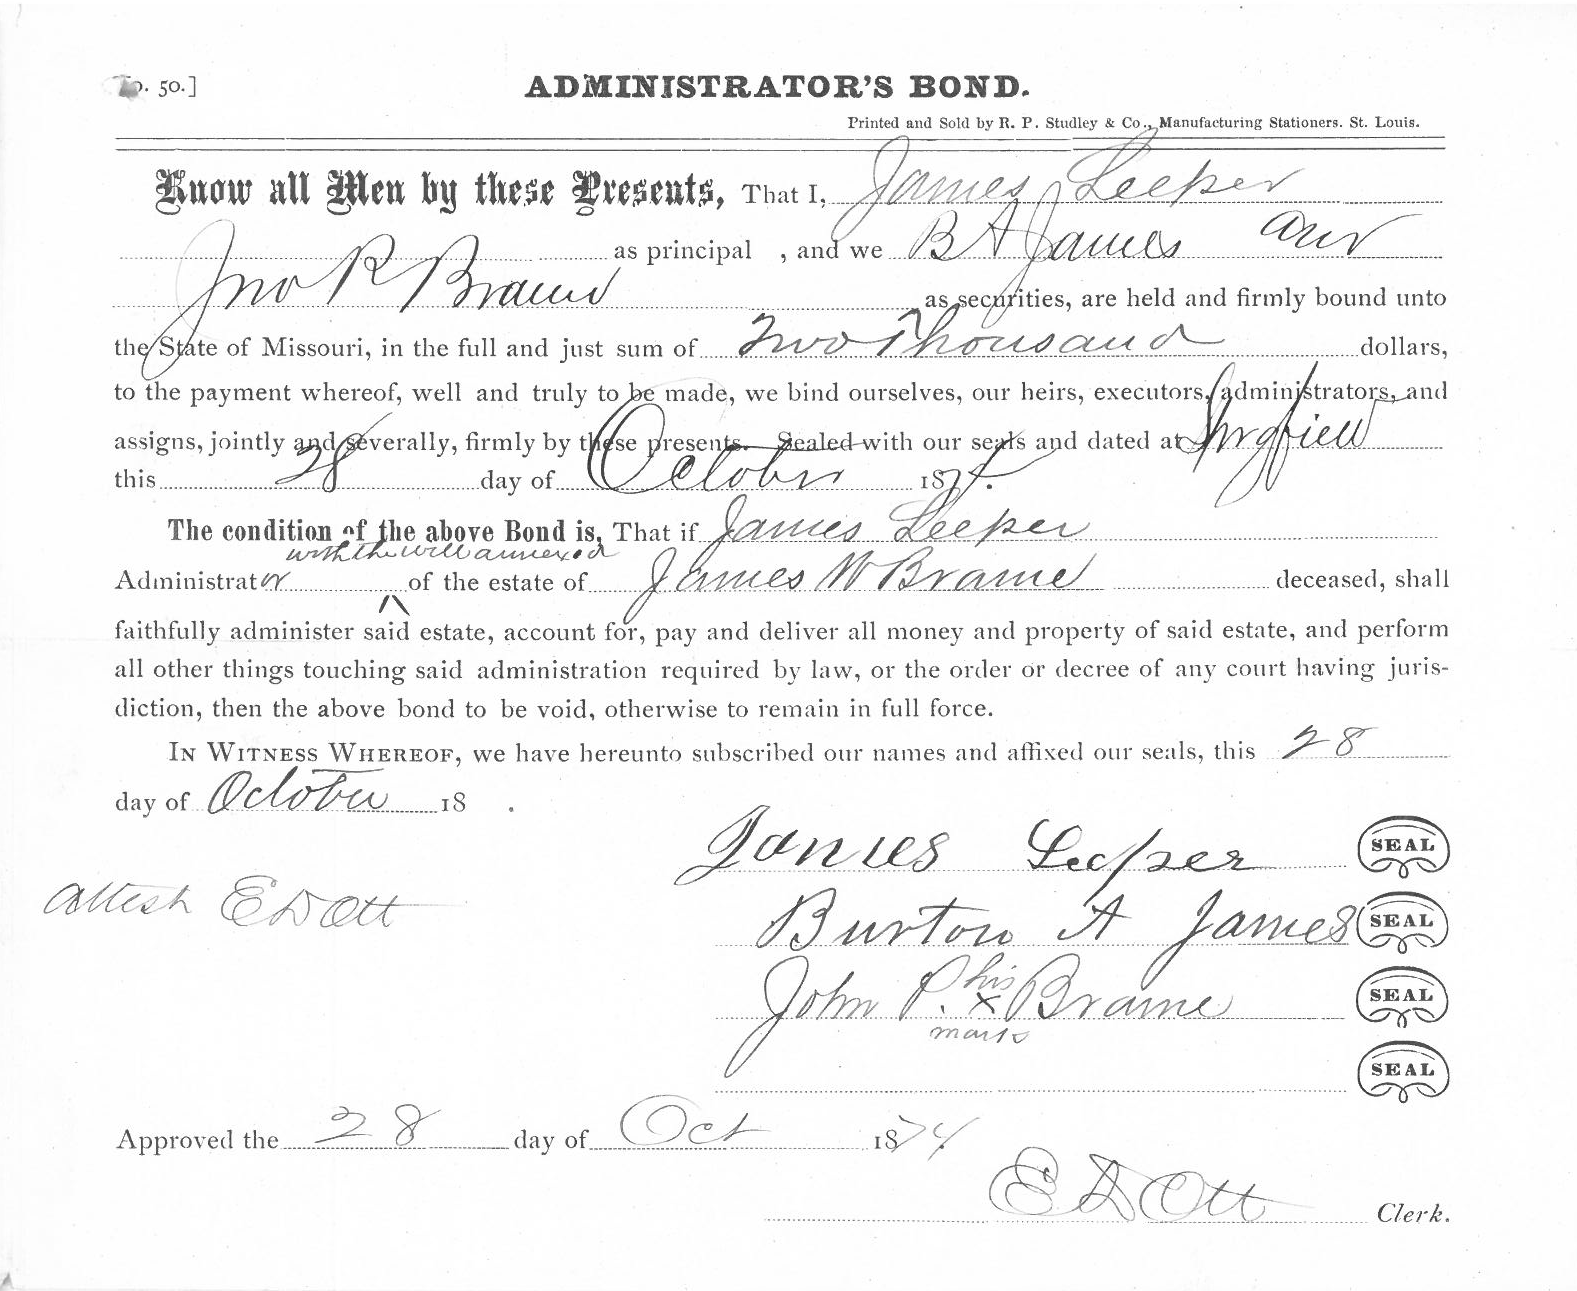 o. 50.]
ADMINISTRATOR'S BOND.
Printed and Sold by R. P. Studley & Co., Manufacturing Stationers. St. Louis.
Know all Men by these Presents, That I, James Leeper
as principal , and we B A James and
Jno R Brame as securities, are held and firmly bound unto
the State of Missouri, in the full and just sum of Two Thousand dollars,
to the payment whereof, well and truly to be made, we bind ourselves, our heirs, executors, administrators, and
assigns, jointly and severally, firmly by these presents. Sealed with our seals and dated at
this 28 day of October 1874.
The condition of the above Bond is, That if James Leeper
with the will annexed
Administrator of the estate of James W Brame deceased, shall
^
faithfully administer said estate, account for, pay and deliver all money and property of said estate, and perform
all other things touching said administration required by law, or the order or decree of any court having juris-
diction, then the above bond to be void, otherwise to remain in full force.
In Witness Whereof, we have hereunto subscribed our names and affixed our seals, this 28
day of October 18 .
James Leeper SEAL
Attest E D Ott
Burton A James SEAL
his
John P. x Brame SEAL
mark
SEAL
Approved the 28 day of Oct 1874.
E D Ott Clerk.